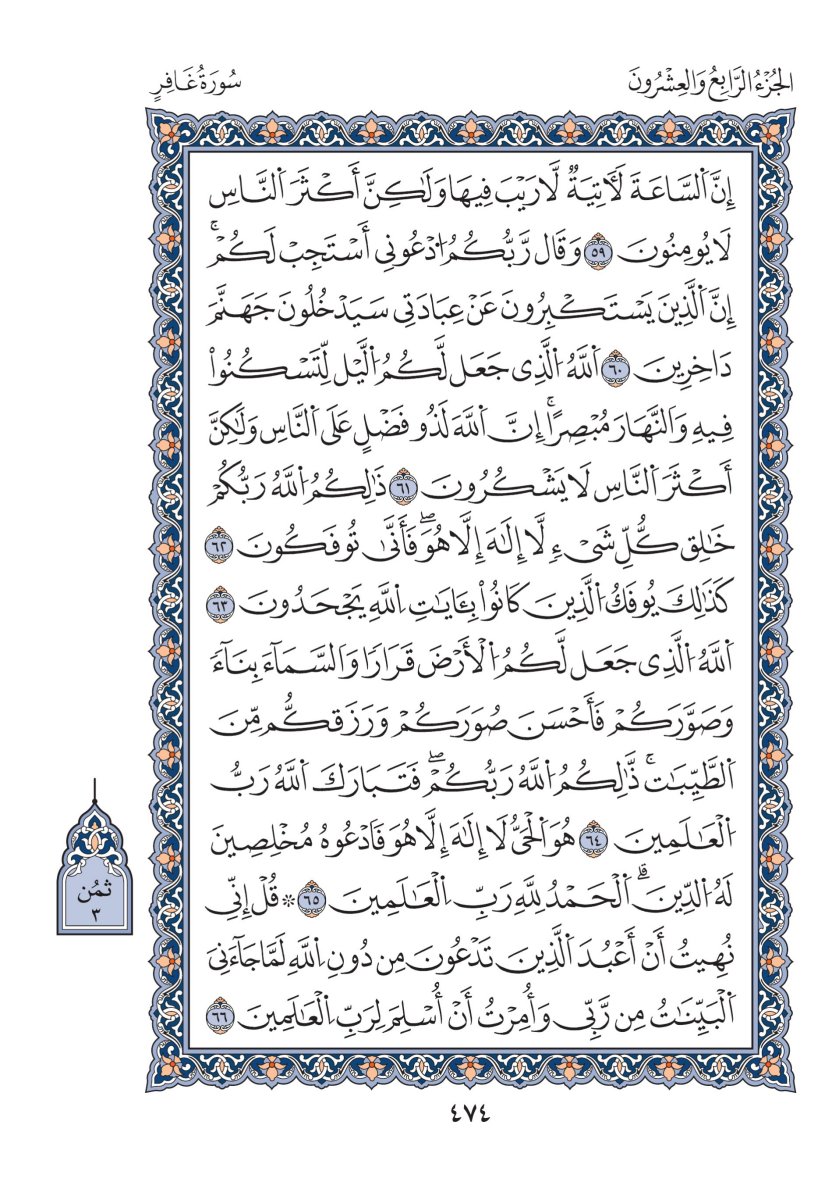 الجُزْءُ الرَّابِعُ وَالعِشْرُونَ
سُورَةُ غَافِرٍ
إِنَّ اَ۬لسَّاعَةَ لَأٓتِيَةٌ لَّا رَيْبَ فِيهَا وَلَٰكِنَّ أَكْثَرَ اَ۬لنَّاسِ
لَا يُومِنُونَ ٥٩ وَقَال رَّبُّكُمُ اُ۟دْعُونِى أَسْتَجِبْ لَكُمْۚ
إِنَّ اَ۬لَّذِينَ يَسْتَكْبِرُونَ عَنْ عِبَادَتِى سَيَدْخُلُونَ جَهَنَّمَ
دَاخِرِينَ ٦٠ اَ۬للَّهُ اُ۬لَّذِى جَعَل لَّكُمُ اُ۬لَّيْل لِّتَسْكُنُواْ
فِيهِ وَالنَّهَارَ مُبْصِرًاۚ إِنَّ اَ۬للَّهَ لَذُو فَضْلٍ عَلَى اَ۬لنَّاسِ وَلَٰكِنَّ
أَكْثَرَ اَ۬لنَّاسِ لَا يَشْكُرُونَ ٦١ ذَٰلِكُمُ اُ۬للَّهُ رَبُّكُمْ
خَٰلِق كُّلِّ شَىْءٍ لَّا إِلَٰهَ إِلَّا هُوَۖ فَأَنَّىٰ تُوفَكُونَ ٦٢
كَذَٰلِكَ يُوفَكُ اُ۬لَّذِينَ كَانُواْ بِـَٔايَٰتِ اِ۬للَّهِ يَجْحَدُونَ ٦٣
اَ۬للَّهُ اُ۬لَّذِى جَعَل لَّكُمُ اُ۬لْأَرْضَ قَرَارًا وَالسَّمَآءَ بِنَآءً
وَصَوَّرَكُمْ فَأَحْسَنَ صُوَرَكُمْ وَرَزَقكُّم مِّنَ
اَ۬لطَّيِّبَٰتِۚ ذَّٰلِكُمُ اُ۬للَّهُ رَبُّكُمْۖ فَتَبَارَكَ اَ۬للَّهُ رَبُّ
اُ۬لْعَٰلَمِينَ ٦٤ هُوَ اَ۬لْحَىُّ لَا إِلَٰهَ إِلَّا هُوَ فَادْعُوهُ مُخْلِصِينَ
لَهُ اُ۬لدِّينَۗ اَ۬لْحَمْدُ لِلَّهِ رَبِّ اِ۬لْعَٰلَمِينَ ٦٥ ۞ قُلْ إِنِّى
نُهِيتُ أَنْ أَعْبُدَ اَ۬لَّذِينَ تَدْعُونَ مِن دُونِ اِ۬للَّهِ لَمَّا جَآءَنِىَ
اَ۬لْبَيِّنَٰتُ مِن رَّبِّى وَأُمِرْتُ أَنْ أُسْلِمَ لِرَبِّ اِ۬لْعَٰلَمِينَ ٦٦
ثمُن
٣
٤٧٤